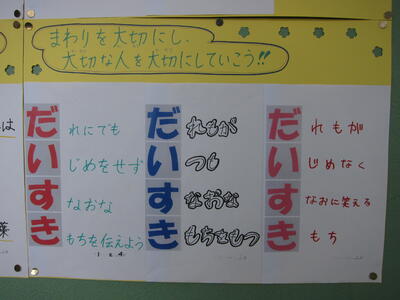 まわりを大切にし、
大切な人を大切にしていこう!!
だれにでも
いじめをせず
すなおな
きもちを伝えよう
だれもが
すなおな
きもちをもつ
だれもが
いじめなく
すなおに笑える
きもち
は
葉